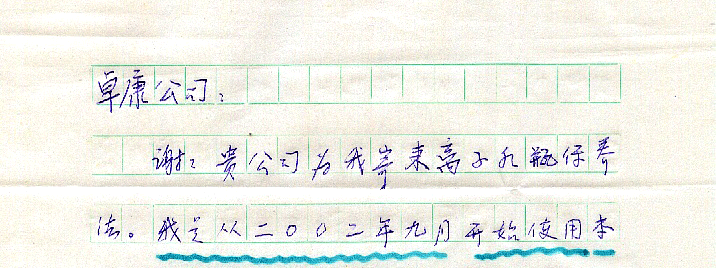 卓康公司：
谢谢贵公司为我寄来离子水瓶保养
法。我是从二〇〇二年九月开始使用本